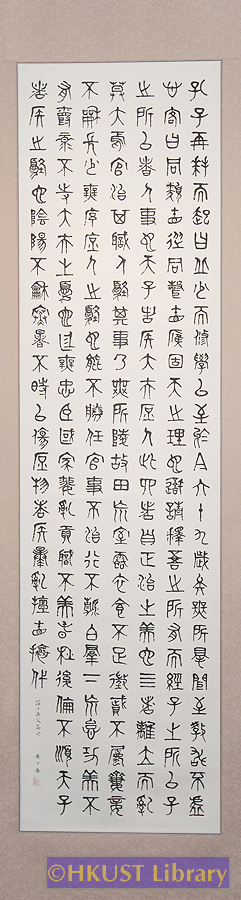 孔子再拜而起曰丘少而脩學以至於今六十九歲矣無所得聞至教敢不虛
心客曰同類相從同聲相應固天之理也吾請釋吾之所有而經子之所以子
之所以者人事也天子諸侯大夫庶人此四者自正治之美也四者離位而亂
莫大焉官治其職人憂其事乃無所陵故田荒室露衣食不足徵賦不屬妻妾
不和長少無序庶人之憂也能不勝任官事不治行不清白羣下荒怠功美不
有爵祿不持大夫之憂也廷無忠臣國家昏亂貢職不美春秋後倫不順天子
諸侯之憂也陰陽不和寒暑不時以傷庶物諸侯暴亂擅相攘伐
©HKUST Library